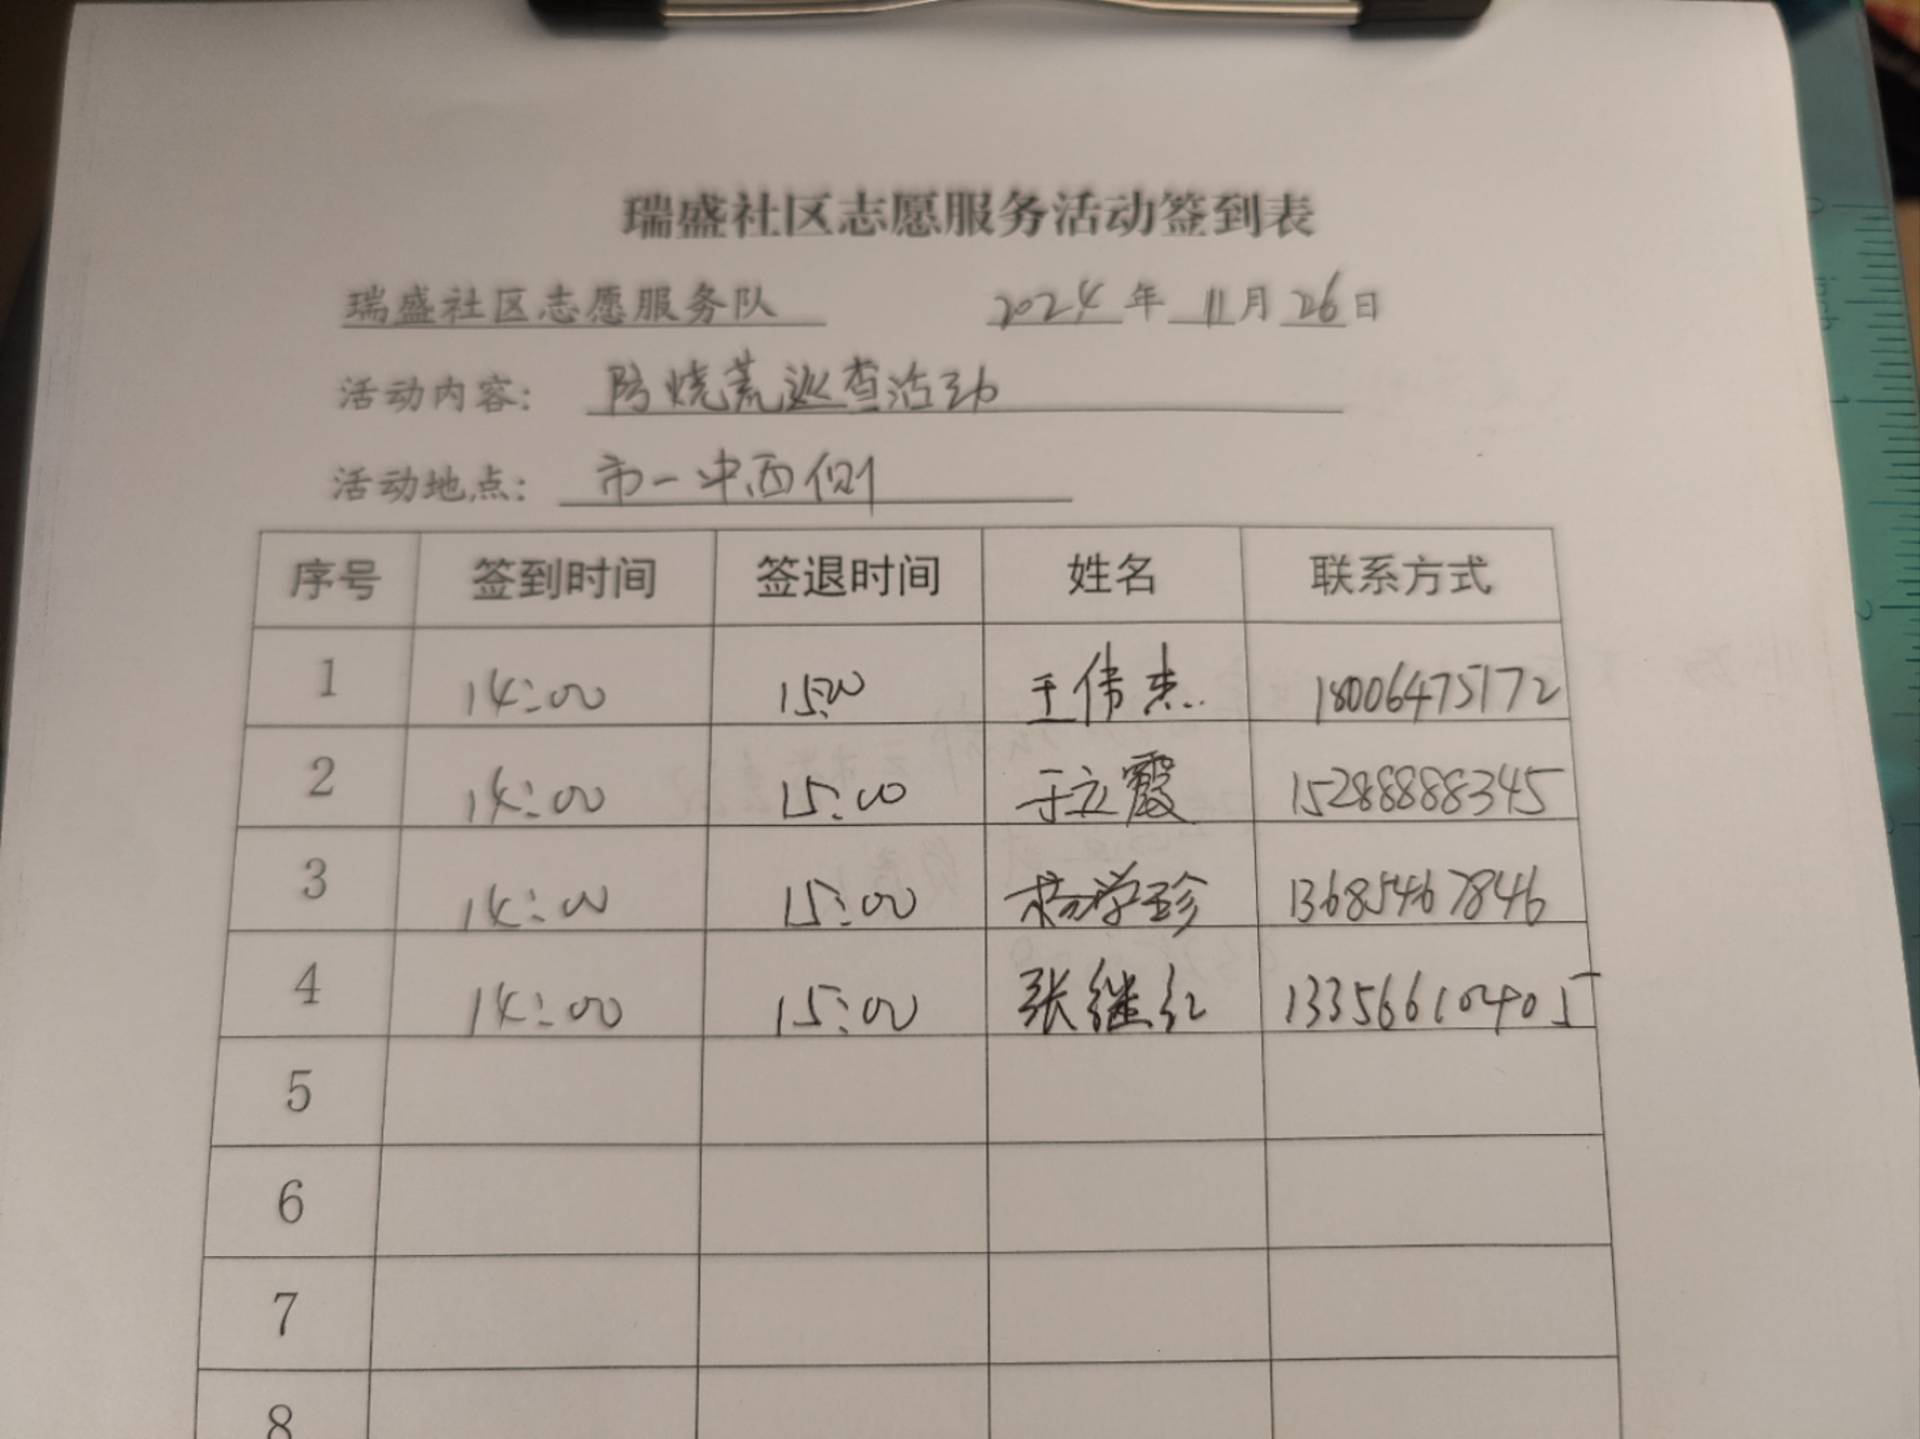 瑞盛社区志愿服务活动签到表
瑞盛社区志愿服务队 2024年11月26日
活动内容: 防烧荒巡查活动
活动地点: 市一中西侧
序号 签到时间 签退时间 姓名 联系方式
1 14:00 15:00 王伟杰 18006475172
2 14:00 15:00 于立霞 15288888345
3 14:00 15:00 杨学珍 13685467846
4 14:00 15:00 张继红 13356610405
5
6
7
8